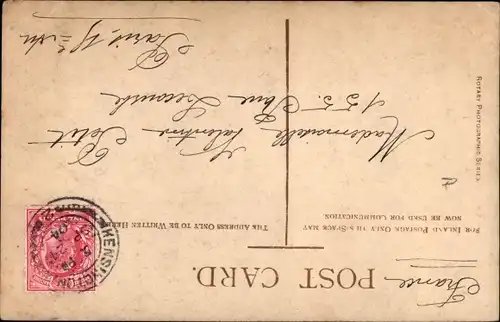 France
POST CARD.
FOR INLAND POSTAGE ONLY THIS SPACE MAY
NOW BE USED FOR COMMUNICATION
THE ADDRESS ONLY TO BE WRITTEN HERE
Mademoiselle
Valentine Petit
155. Rue Lecourbe
Paris
ROTARY PHOTOGRAPHIC SERIES
KENSINGTON